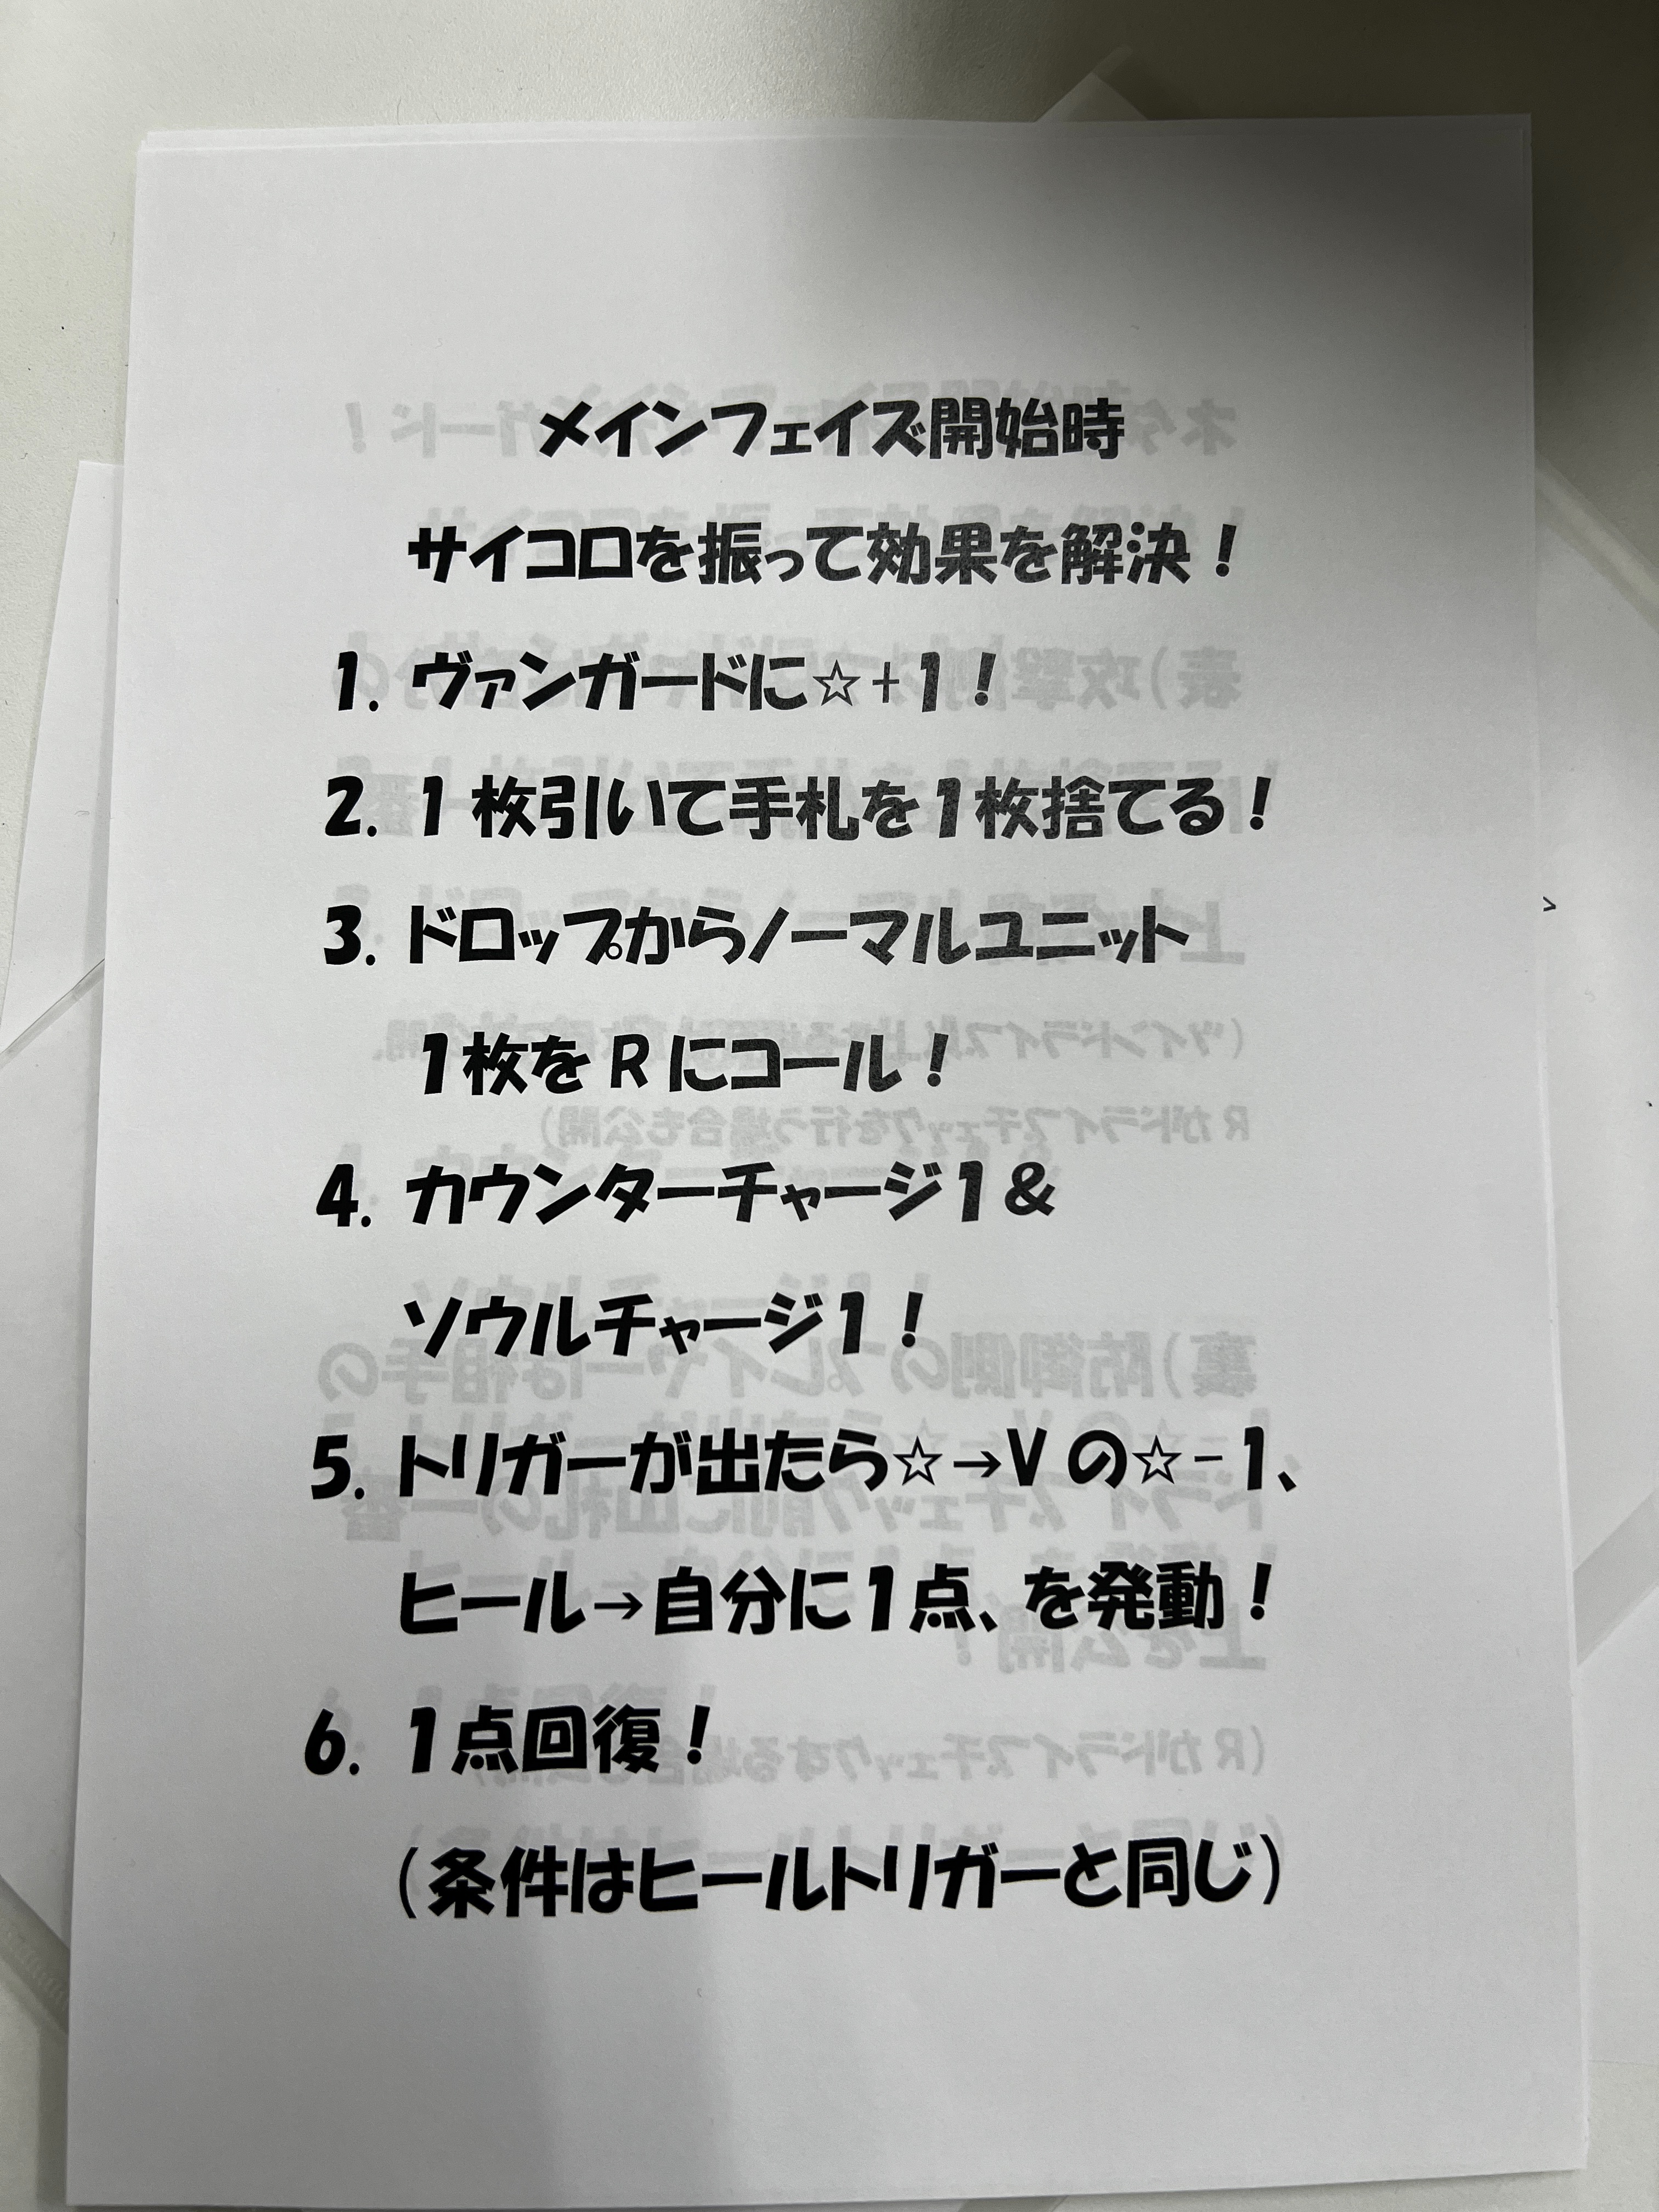 メインフェイズ開始時
サイコロを振って効果を解決！
1. ヴァンガードに☆+1！
2. 1枚引いて手札を1枚捨てる！
3. ドロップからノーマルユニット
1枚をRにコール！
4. カウンターチャージ1＆
ソウルチャージ1！
5. トリガーが出たら☆→Vの☆-1、
ヒール→自分に1点、を発動！
6. 1点回復！
（条件はヒールトリガーと同じ）